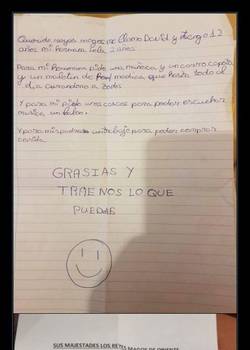 Queridos reyes magos me llamo David y tengo 12
años mi hermana Lola 2 años
Para mi hermana pido una muñeca y un carro capota
y un maletin de medica que hasta todo el
dia curandono a todos
Y para mi pido unos cascos para poder escuchar
musica, un
Y para mis padres un trabajo para poder comprar
comida
GRASIAS Y
TRAENOS LO QUE
PUEDAS
SUS MAJESTADES LOS REYES MAGOS DE ORIENTE